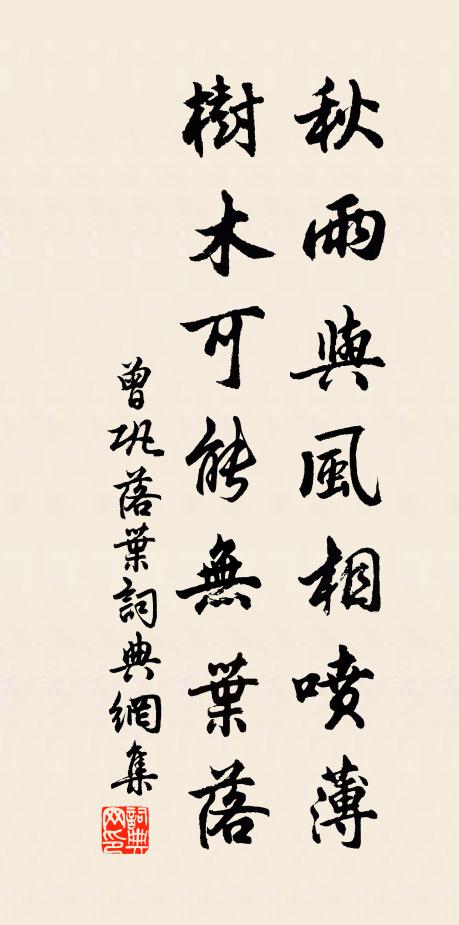 秋雨與風相噴薄
樹木可能無葉落
曾巩落葉詞典網集
詞典网印